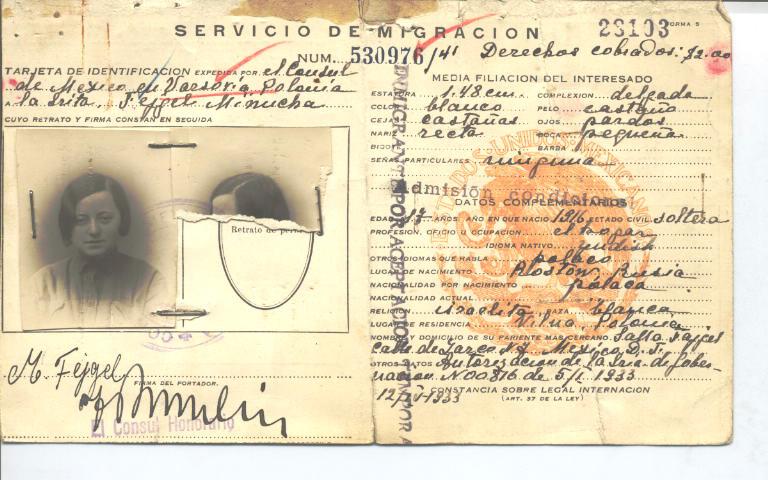 SERVICIO DE MIGRACION
23103
FORMA 5
NUM. 530976/41 Derechos cobrados: 12.00
TARJETA DE IDENTIFICACION EXPEDIDA POR el Consul
de Mexico en Varsovia, Polonia
A la Srita. Fejgel Minucha
CUYO RETRATO Y FIRMA CONSTAN EN SEGUIDA
Retrato de
M. Fejgel
FIRMA DEL PORTADOR.
El Consul Honorario
MEDIA FILIACION DEL INTERESADO
ESTATURA 1.48 cm. COMPLEXION delgada
COLOR blanco PELO castaño
CEJAS castañas OJOS pardos
NARIZ recta BOCA pequeña
BIGOTE BARBA
SEÑAS PARTICULARES ninguna
ESTADOS UNIDOS MEXICANOS
Admisión condicional
DATOS COMPLEMENTARIOS
EDAD 17 AÑOS: AÑO EN QUE NACIO 1916 ESTADO CIVIL soltera
PROFESION, OFICIO U OCUPACION el hogar
IDIOMA NATIVO yudish
OTROS IDIOMAS QUE HABLA polaco
LUGAR DE NACIMIENTO Rostow, Rusia
NACIONALIDAD POR NACIMIENTO polaca
NACIONALIDAD ACTUAL
RELIGION israelita RAZA blanca
LUGAR DE RESIDENCIA Vilna, Polonia
NOMBRE Y DOMICILIO DE SU PARIENTE MAS CERCANO
Calle de Zarco Mexico D. F.
OTROS DATOS Autorizacion de la Sria. de Gober-
nacion No 00816 de 5/I. 1933
12/ 1933 CONSTANCIA SOBRE LEGAL INTERNACION
(ART. 37 DE LA LEY)